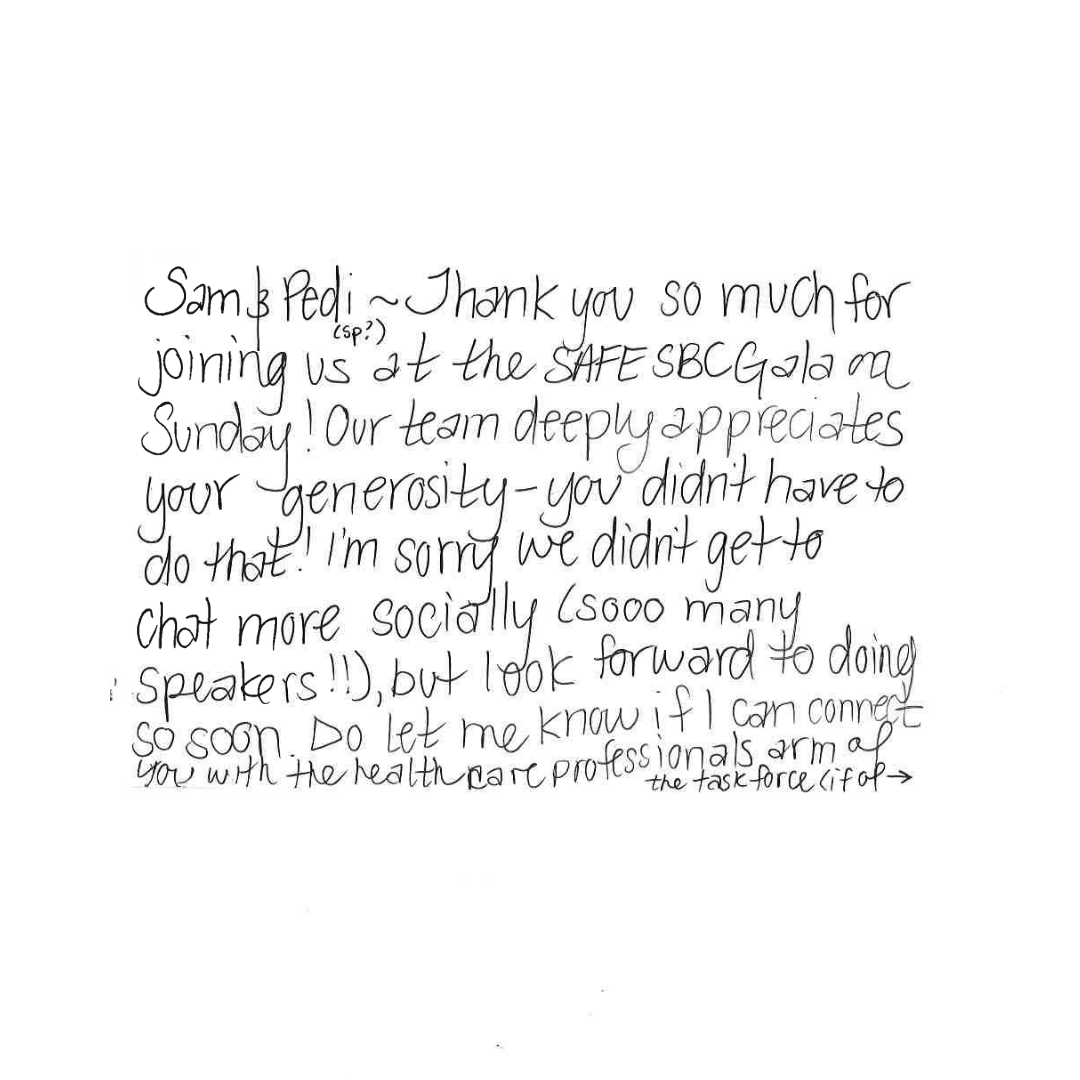 Sam & Pedi ~ Thank you so much for
(sp?)
joining us at the SAFE SBC Gala on
Sunday! Our team deeply appreciates
your generosity - you didn't have to
do that! I'm sorry we didn't get to
chat more socially (sooo many
speakers!!), but look forward to doing
so soon. Do let me know if I can connect
you with the health care professionals arm of
the task force (if of →